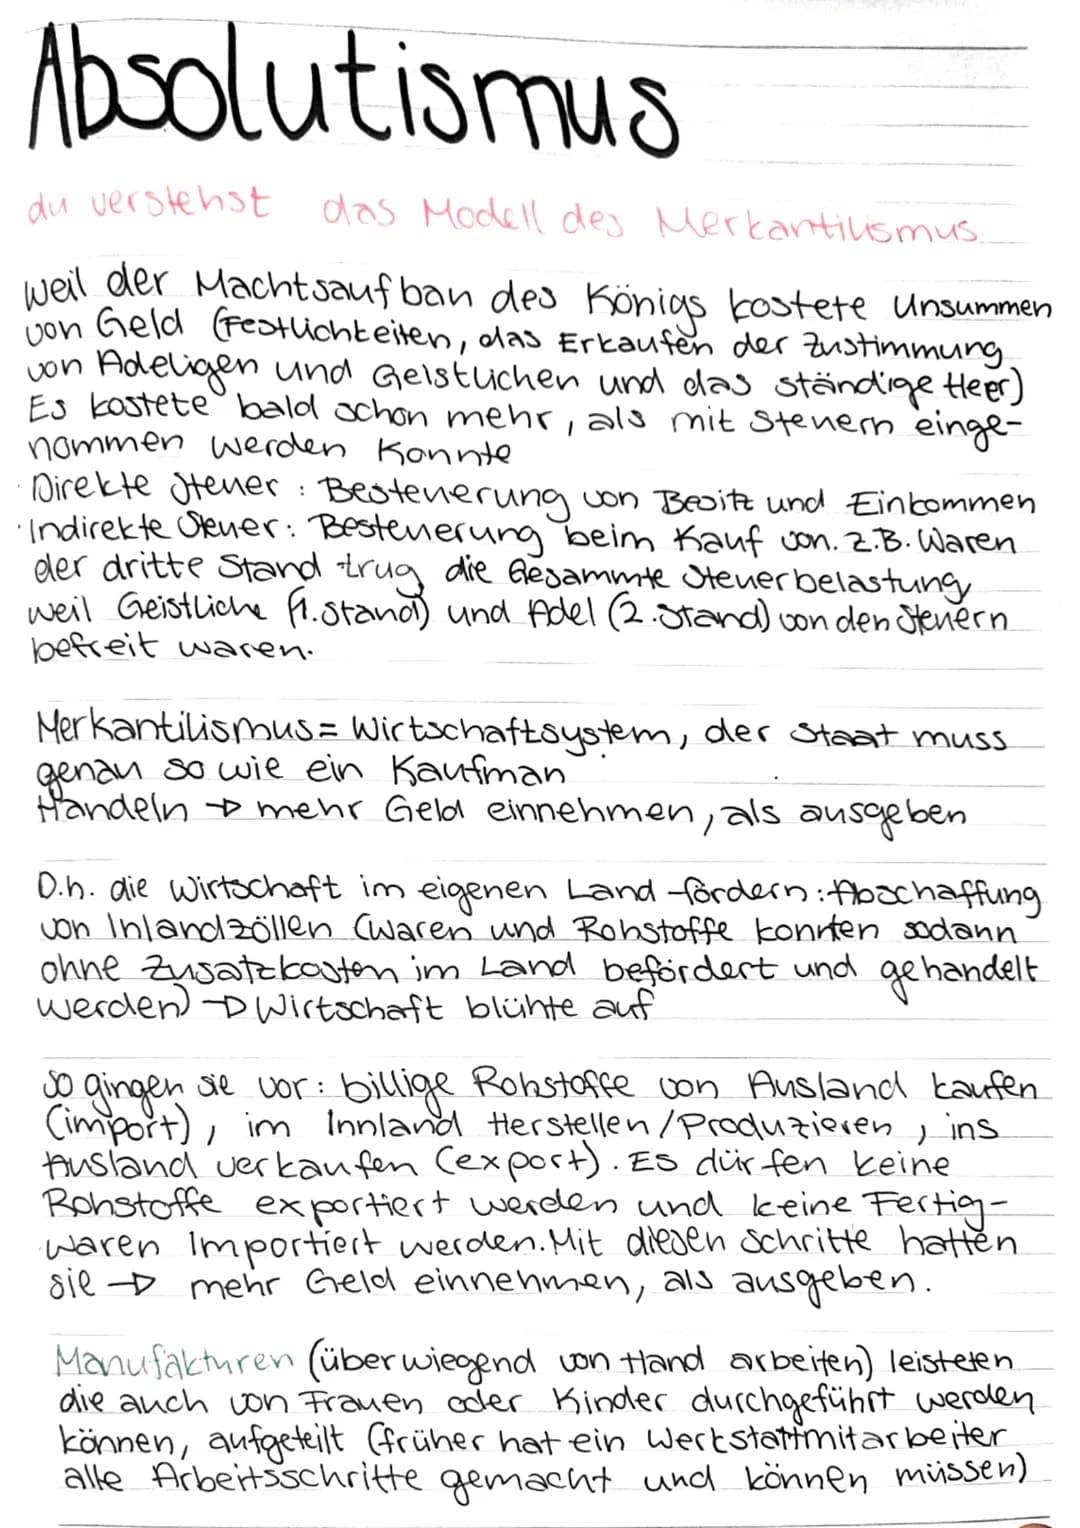 Absolutismus
du verstehst das Modell des Merkantilismus
weil der Machtsaufbau des Königs kostete Unsummen
von Geld (Festlichkeiten, das Erkaufen der Zustimmung
von Adeligen und Geistlichen und das ständige Heer)
Es kostete bald schon mehr, als mit Steuern einge-
nommen werden konnte
· Direkte Steuer: Besteuerung von Besitz und Einkommen
· Indirekte Steuer: Besteuerung beim Kauf von. z.B. Waren
der dritte Stand trug die Gesammte Steuerbelastung
weil Geistliche (1. Stand) und Adel (2. Stand) von den Steuern
befreit waren.
Merkantilismus = Wirtschaftsystem, der Staat muss
genau so wie ein Kaufman
Handeln → mehr Geld einnehmen, als ausgeben
D.h. die Wirtschaft im eigenen Land fördern: Abschaffung
von Inlandzöllen (Waren und Rohstoffe konnten sodann
ohne Zusatzkosten im Land befördert und gehandelt
werden) → Wirtschaft blühte auf
So gingen sie vor: billige Rohstoffe von Ausland kaufen
(import), im Innland Herstellen/Produzieren, ins
Ausland verkaufen (export). Es dürfen keine
Rohstoffe exportiert werden und keine Fertig-
waren Importiert werden. Mit diesen Schritte hatten
sie → mehr Geld einnehmen, als ausgeben.
Manufakturen (überwiegend von Hand arbeiten) leisteten
die auch von Frauen oder Kinder durchgeführt werden
können, aufgeteilt (früher hat ein Werkstattmitarbeiter
alle Arbeitsschritte gemacht und können müssen)